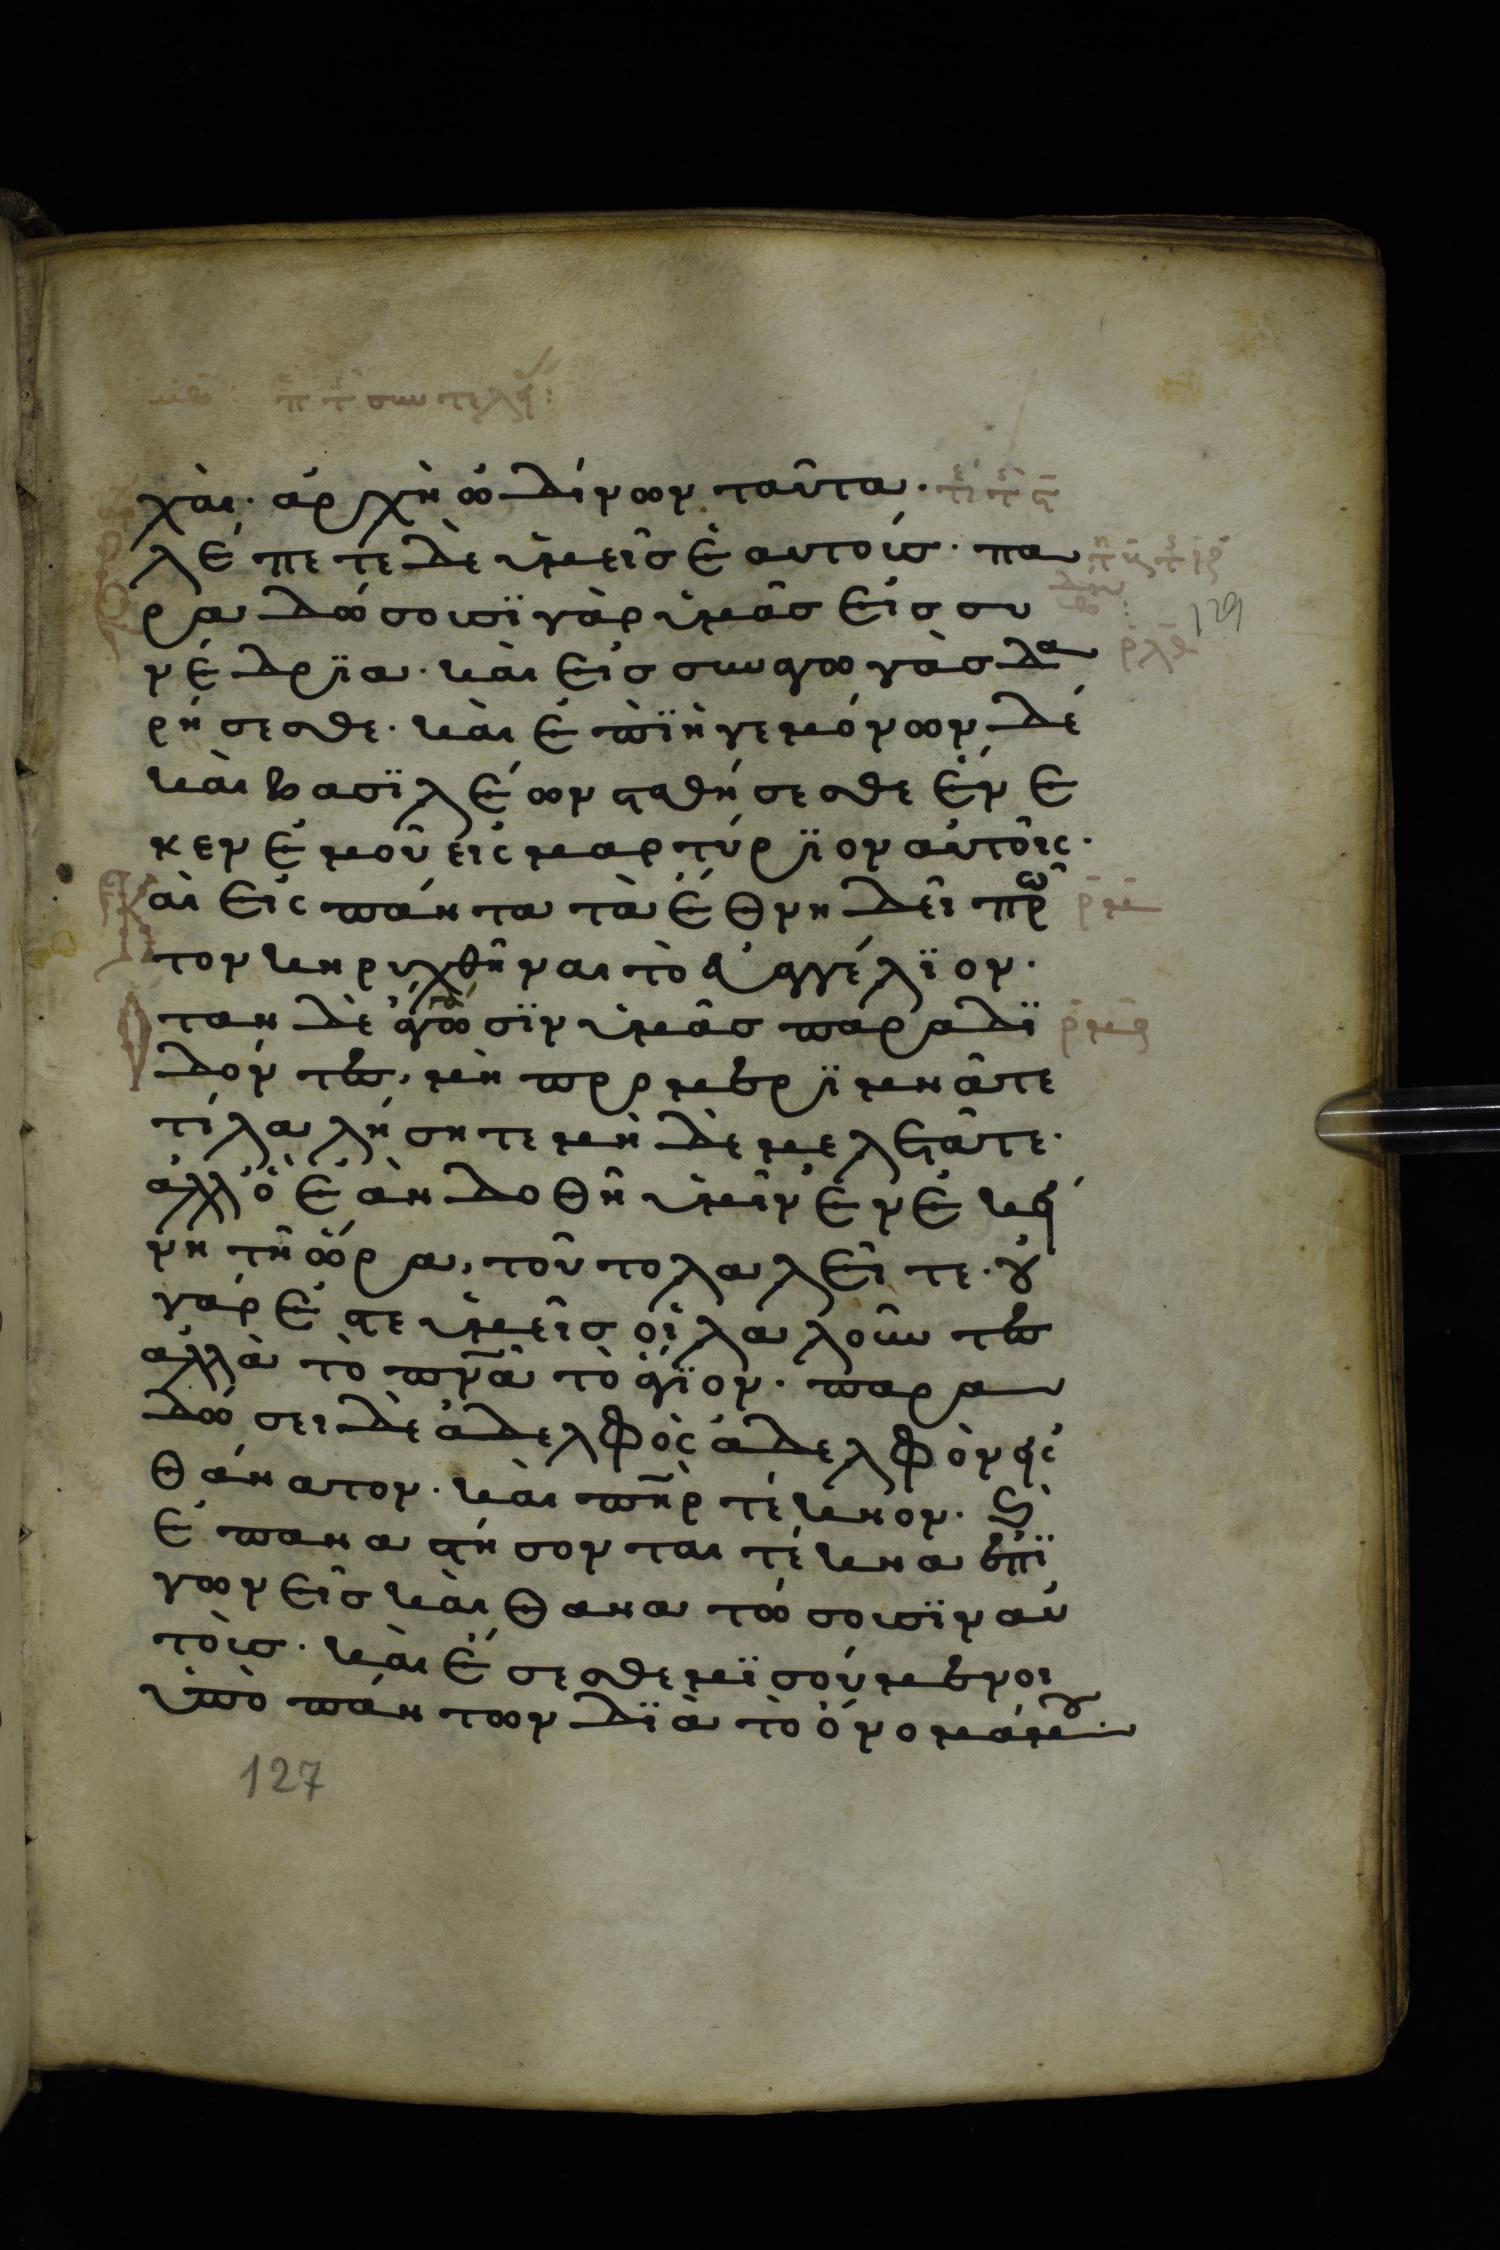 χαὶ· ἀρχὴ ὠδίνων ταῦτα·
λέπετε δὲ ὑμεῖσ ἑαυτοίσ· πα
129
ραδώσουσϊ γὰρ ὑμᾶσ εἰσ συ
νέδρϊα· καὶ εἰσ συναγωγὰσ δα
ρήσεσθε· καὶ ἐπῒ ἡγεμόνων δέ
καὶ βασϊλέων σταθήσεσθε ἕνε
κεν ἐμοῦ εἰς μαρτύρϊον αὐτοῖς·
Καὶ εἰς πάντα τὰ ἔθνη δεῖ πρῶ
τον κηρυχθῆναι τὸ εὐαγγέλϊον·
Ὅταν δὲ ἀγάγωσϊν ὑμᾶσ παραδϊ
δόντες, μὴ προμερϊμνᾶτε
τί λαλήσητε μὴ δὲ μελετᾶτε·
ἀλλ' ὃ ἐὰν δοθῆ ὑμῖν ἐν ἐκεί
νη τῆ ὥρα, τοῦτο λαλεῖτε· οὐ
γάρ ἐστε ὑμεῖσ οἱ λαλοῦντες
ἀλλὰ τὸ πν̅α τὸ ἅγϊον· παρα
δώσει δὲ ἀδελφὸς ἀδελφὸν εἰς
θάνατον· καὶ πη̅ρ τέκνον· καὶ
ἐπαναστήσονται τέκνα ἐπῒ
γονεῖσ καὶ θανατώσουσϊν αὐ
τοὶσ· καὶ ἔσεσθε μϊσούμενοι
ὑπὸ πάντων δϊὰ τὸ ὄνομά μου·
127